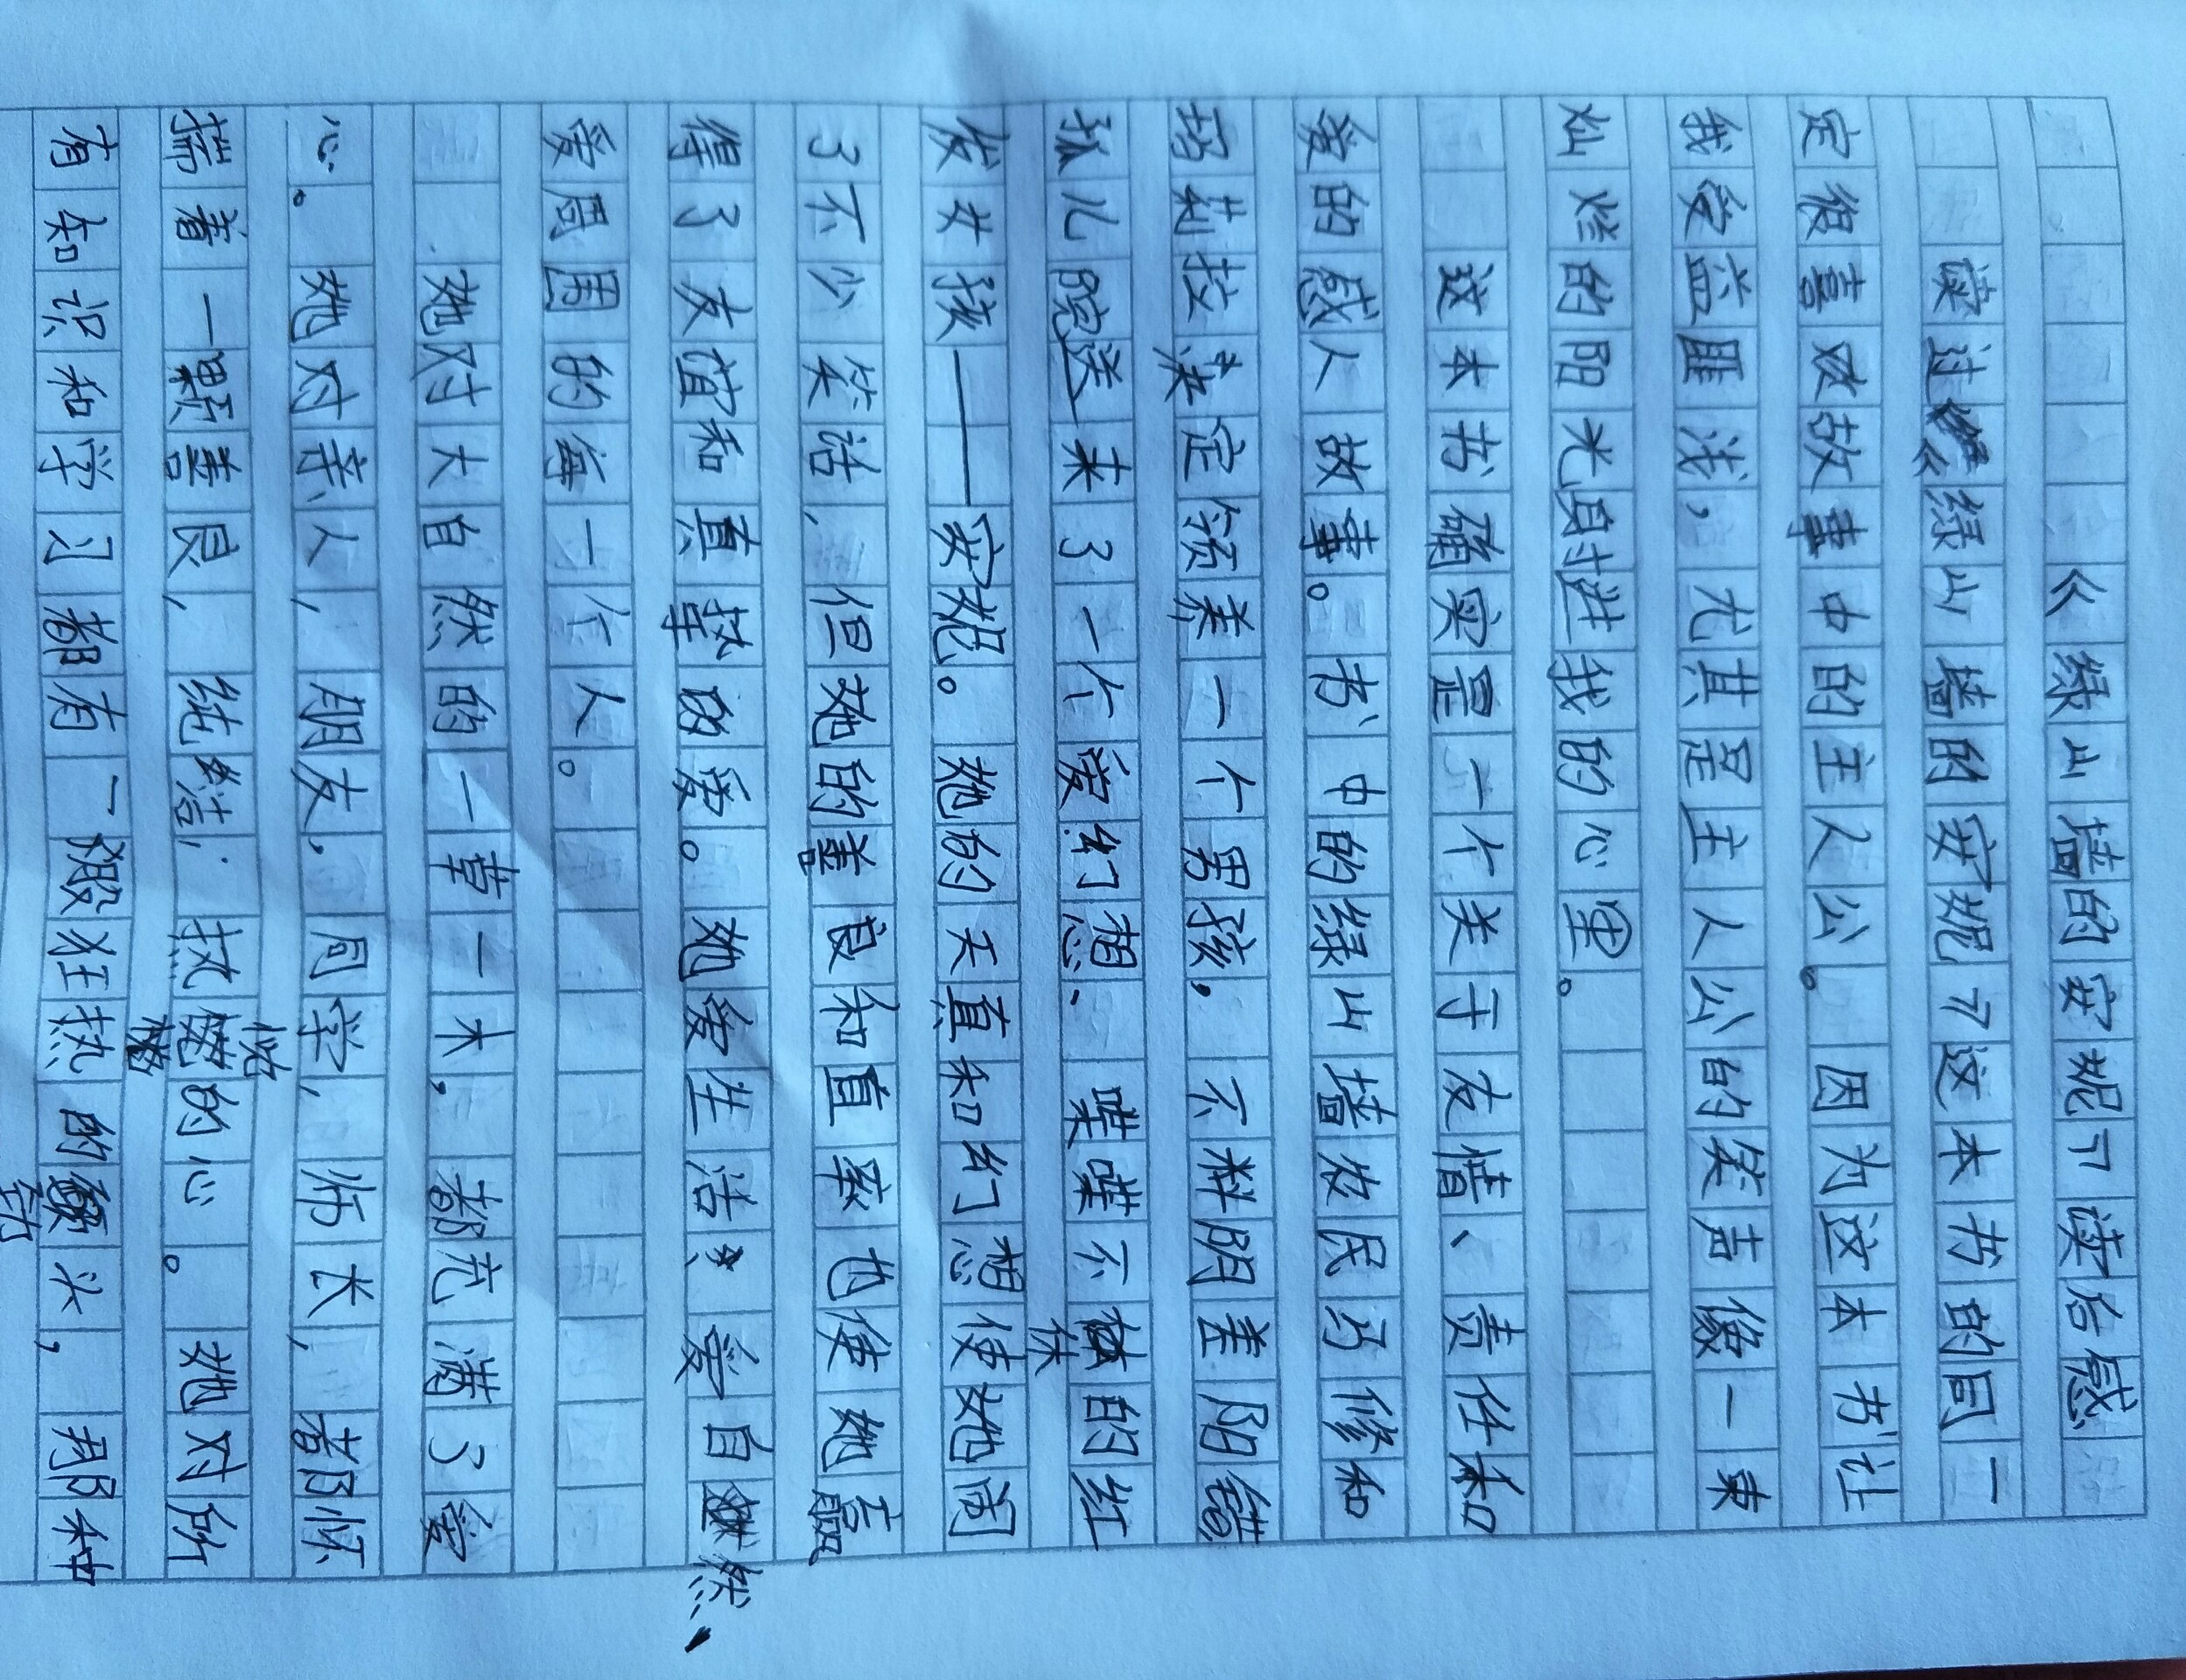 《绿山墙的安妮》读后感
读过《绿山墙的安妮》这本书的同一
定很喜欢故事中的主人公。因为这本书让
我受益匪浅，尤其是主人公的笑声像一束
灿烂的阳光射进我的心里。
这本书确实是一个关于友情、责任和
爱的感人故事。书中的绿山墙农民乃修和
玛莉拉决定领养一个男孩，不料阴差阳错
孤儿院送来了一个爱幻想、喋喋不休的红
发女孩——安妮。她的天真和幻想使她闹
了不少笑话，但她的善良和直率也使她赢
得了友谊和真挚的爱。她爱生活，爱自然、
爱周围的每一个人。
她对大自然的一草一木，都充满了爱
心。她对亲人，朋友，同学，师长，都怀
揣着一颗善良，纯洁，执的心。她对所
有知识和学习都有一股狂热的劲头，那种